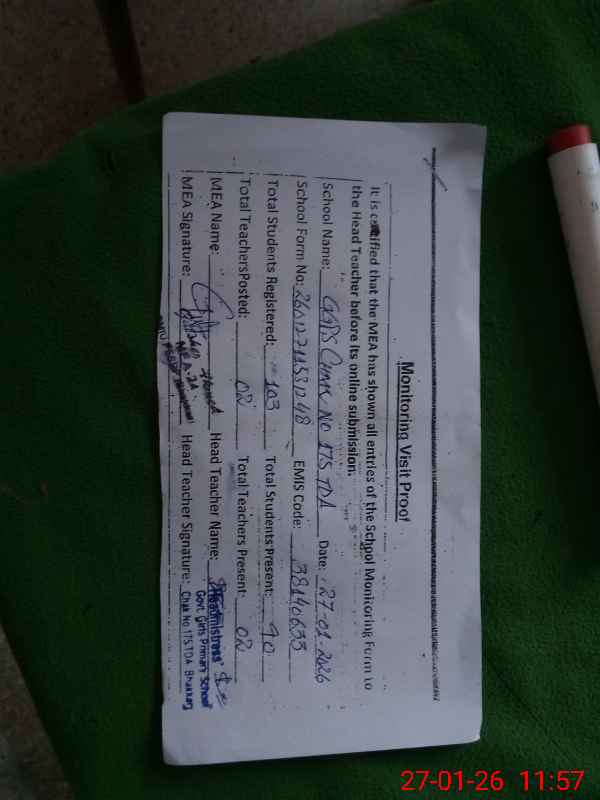 Monitoring Visit Proof
It is certified that the MEA has shown all entries of the School Monitoring Form to
the Head Teacher before its online submission.
School Name: GGPS Chak No 175 TDA Date: 27-01-2026
School Form No: EMIS Code: 38140635
Total Students Registered: 103 Total Students Present: 90
Total TeachersPosted: 02 Total Teachers Present: 02
MEA Name: Head Teacher Name:
MEA Signature: Head Teacher Signature:
MEA-2A
Headmistress
Govt. Girls Primary School
Chak No 175 TDA Bhakkar
27-01-26 11:57